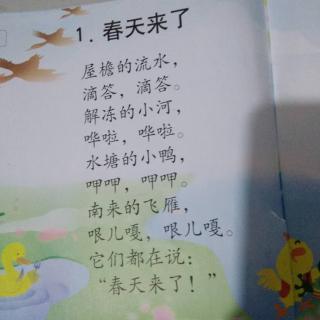 1. 春天来了
屋檐的流水，
滴答，滴答。
解冻的小河，
哗啦，哗啦。
水塘的小鸭，
呷呷，呷呷。
南来的飞雁，
哏儿嘎，哏儿嘎。
它们都在说：
“春天来了！”